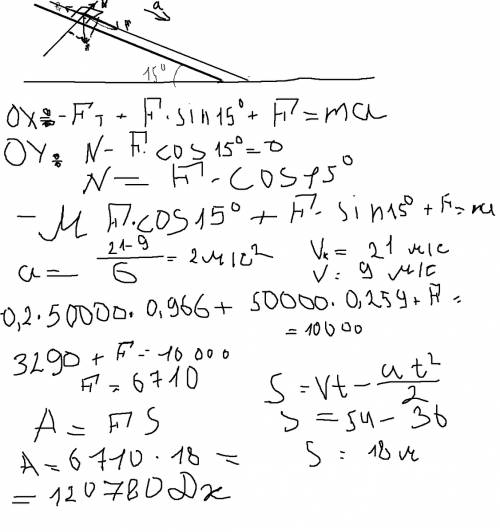 a
N
F
15°
OX: -Fт + F·sin15° + F = ma
OY: N - F·cos15° = 0
N = F·cos15°
-M F·cos15° + F·sin15° + F = m
a = 21-9 / 6 = 2 м/с²
Vк = 21 м/с
V = 9 м/с
0,2·50000·0,966 + 50000·0,259 + F =
= 10000
3290 + F = 10 000
F = 6710
S = Vt - at²/2
S = 54 - 36
S = 18 м
A = FS
A = 6710·18 =
= 120780 Дж